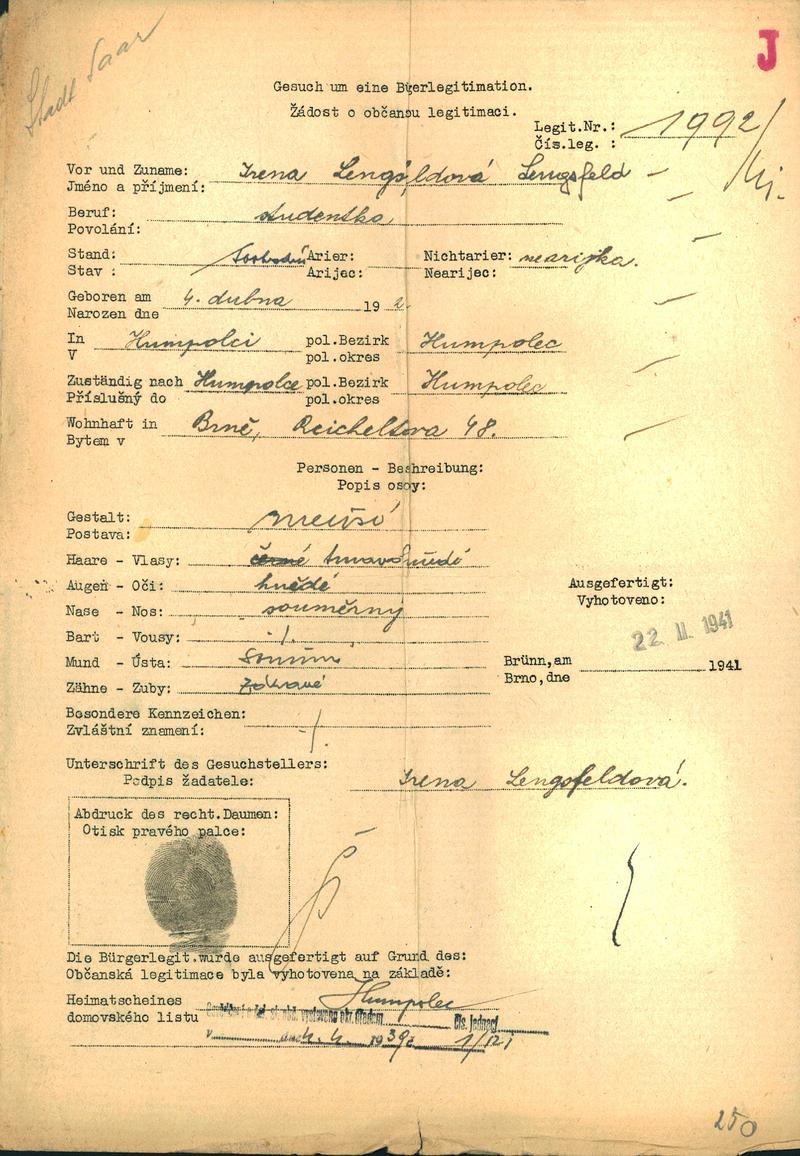 Stadt Saar
J
Gesuch um eine Büerlegitimation.
Žádost o občansu legitimaci.
Legit.Nr.: 1992/
Čís.leg. :
Vor und Zuname: Irena Lengsfeldová Lengsfeld
Jméno a příjmení:
Beruf: studentka
Povolání:
Stand: svobodná Arier: Nichtarier: nearijka.
Stav : Arijec: Nearijec:
Geboren am 4. dubna 19 2
Narozen dne
In Humpolci pol.Bezirk Humpolec
V pol.okres
Zuständig nach Humpolce pol.Bezirk Humpolec
Příslušný do pol.okres
Wohnhaft in Brně, Reicheltova 48.
Bytem v
Personen - Beshreibung:
Popis osoy:
Gestalt: menší
Postava:
Haare - Vlasy: černé tmavohnědé
Augen - Oči: hnědé
Nase - Nos: souměrný
Bart - Vousy: -/.
Mund - Ústa: soum
Zähne - Zuby: zdravé
Ausgefertigt:
Vyhotoveno:
22 II. 1941
Brünn,am 1941
Brno,dne
Besondere Kennzeichen:
Zvláštní znamení: -/.
Unterschrift des Gesuchstellers:
Podpis žadatele: Irena Lengsfeldová.
Abdruck des recht.Daumen:
Otisk pravého palce:
Die Bürgerlegit.wurde ausgefertigt auf Grund des:
Občanská legitimace byla vyhotovena na základě:
Heimatscheines Humpolec
domovského listu vystaveno okr. úřadem čís. jednací
v dne 4. 4. 1939 č 1/121
250